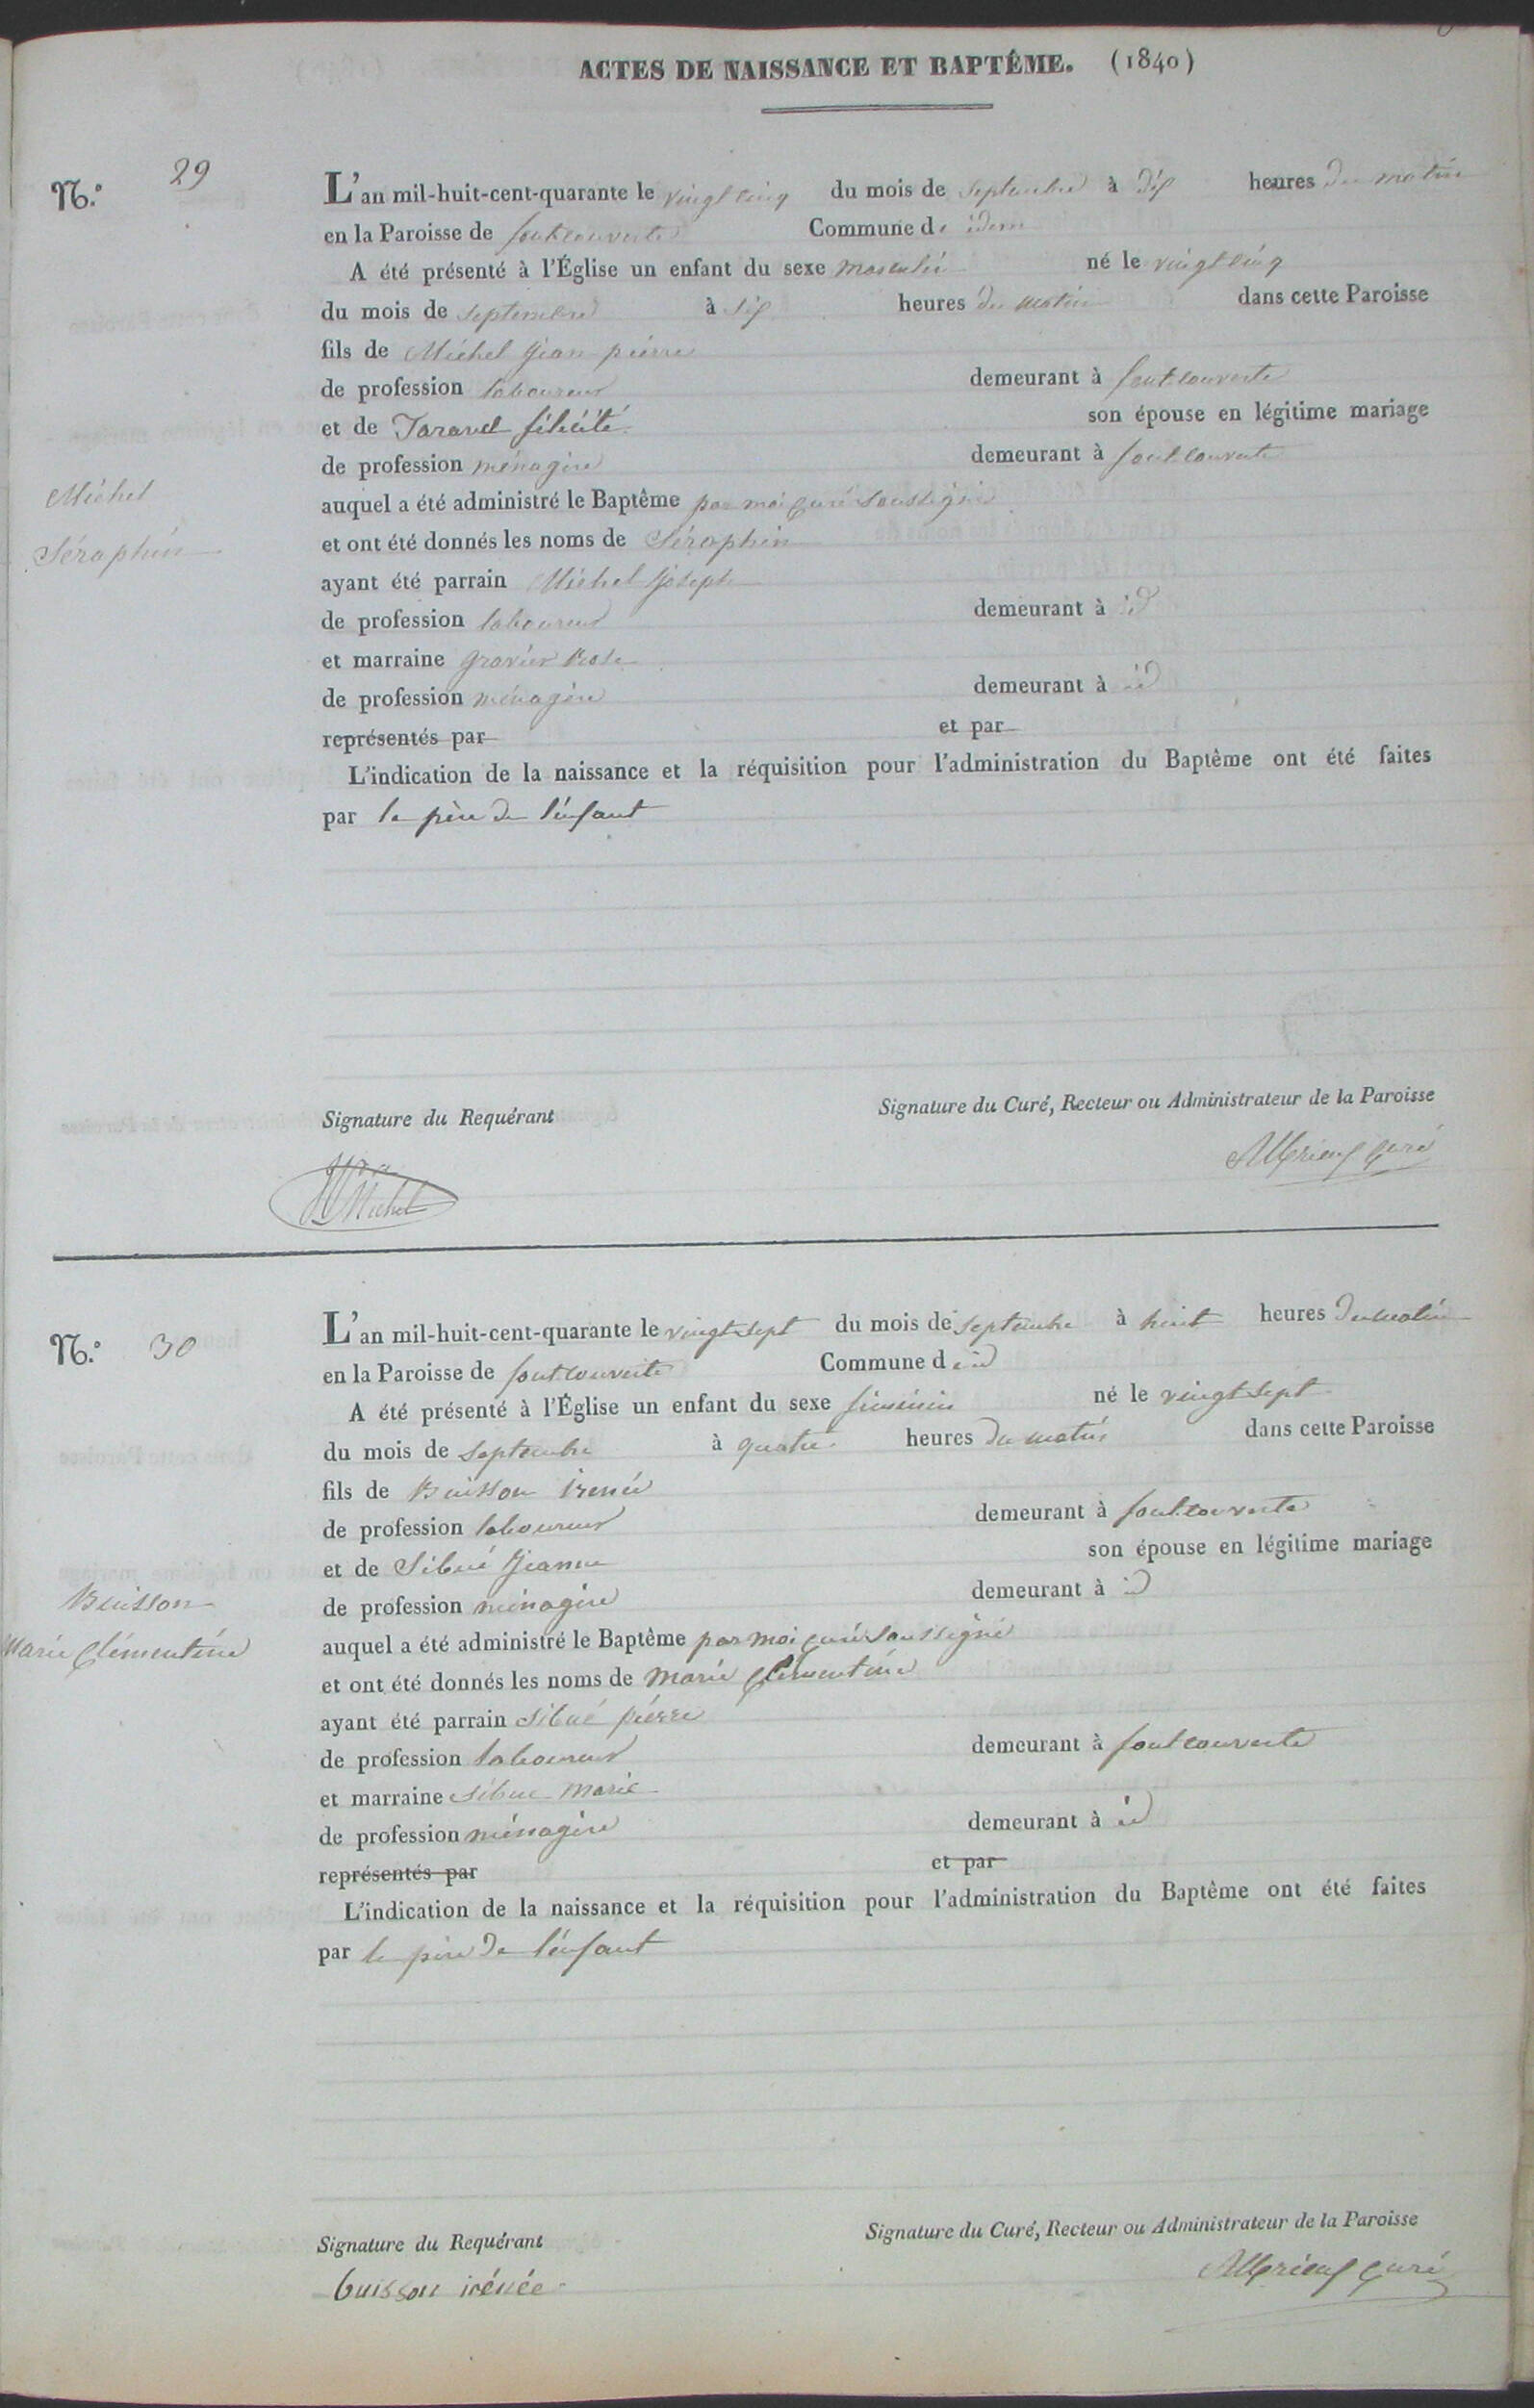 ACTES DE NAISSANCE ET BAPTÊME. (1840)
N.º 29
L'an mil-huit-cent-quarante le vingt cinq du mois de septembre à dix heures du matin
en la Paroisse de fontcouverte Commune de idem
A été présenté à l'Église un enfant du sexe masculin né le vingt cinq
du mois de septembre à six heures du matin dans cette Paroisse
fils de Michel Jean pierre
de profession laboureur demeurant à fontcouverte
et de Taravel félicité son épouse en légitime mariage
de profession ménagère demeurant à fontcouverte
Michel
auquel a été administré le Baptême par moi curé soussigné
Séraphin
et ont été donnés les noms de Séraphin
ayant été parrain Michel Joseph
de profession laboureur demeurant à id
et marraine gravier Rose
de profession ménagère demeurant à id
représentés par et par
L'indication de la naissance et la réquisition pour l'administration du Baptême ont été faites
par le père de l'enfant
Signature du Requérant Signature du Curé, Recteur ou Administrateur de la Paroisse
Michel curé
N.º 30
L'an mil-huit-cent-quarante le vingt sept du mois de septembre à huit heures du matin
en la Paroisse de fontcouverte Commune d id
A été présenté à l'Église un enfant du sexe féminin né le vingt sept
du mois de septembre à quatre heures du matin dans cette Paroisse
fils de Buisson irenée
de profession laboureur demeurant à fontcouverte
et de Sibué Jeanne son épouse en légitime mariage
Buisson
de profession ménagère demeurant à id
Marie Clémentine
auquel a été administré le Baptême par moi curé soussigné
et ont été donnés les noms de Marie Clémentine
ayant été parrain Sibué pierre
de profession laboureur demeurant à fontcouverte
et marraine Sibue Marie
de profession ménagère demeurant à id
représentés par et par
L'indication de la naissance et la réquisition pour l'administration du Baptême ont été faites
par le père de l'enfant
Signature du Requérant Signature du Curé, Recteur ou Administrateur de la Paroisse
buisson irénée curé